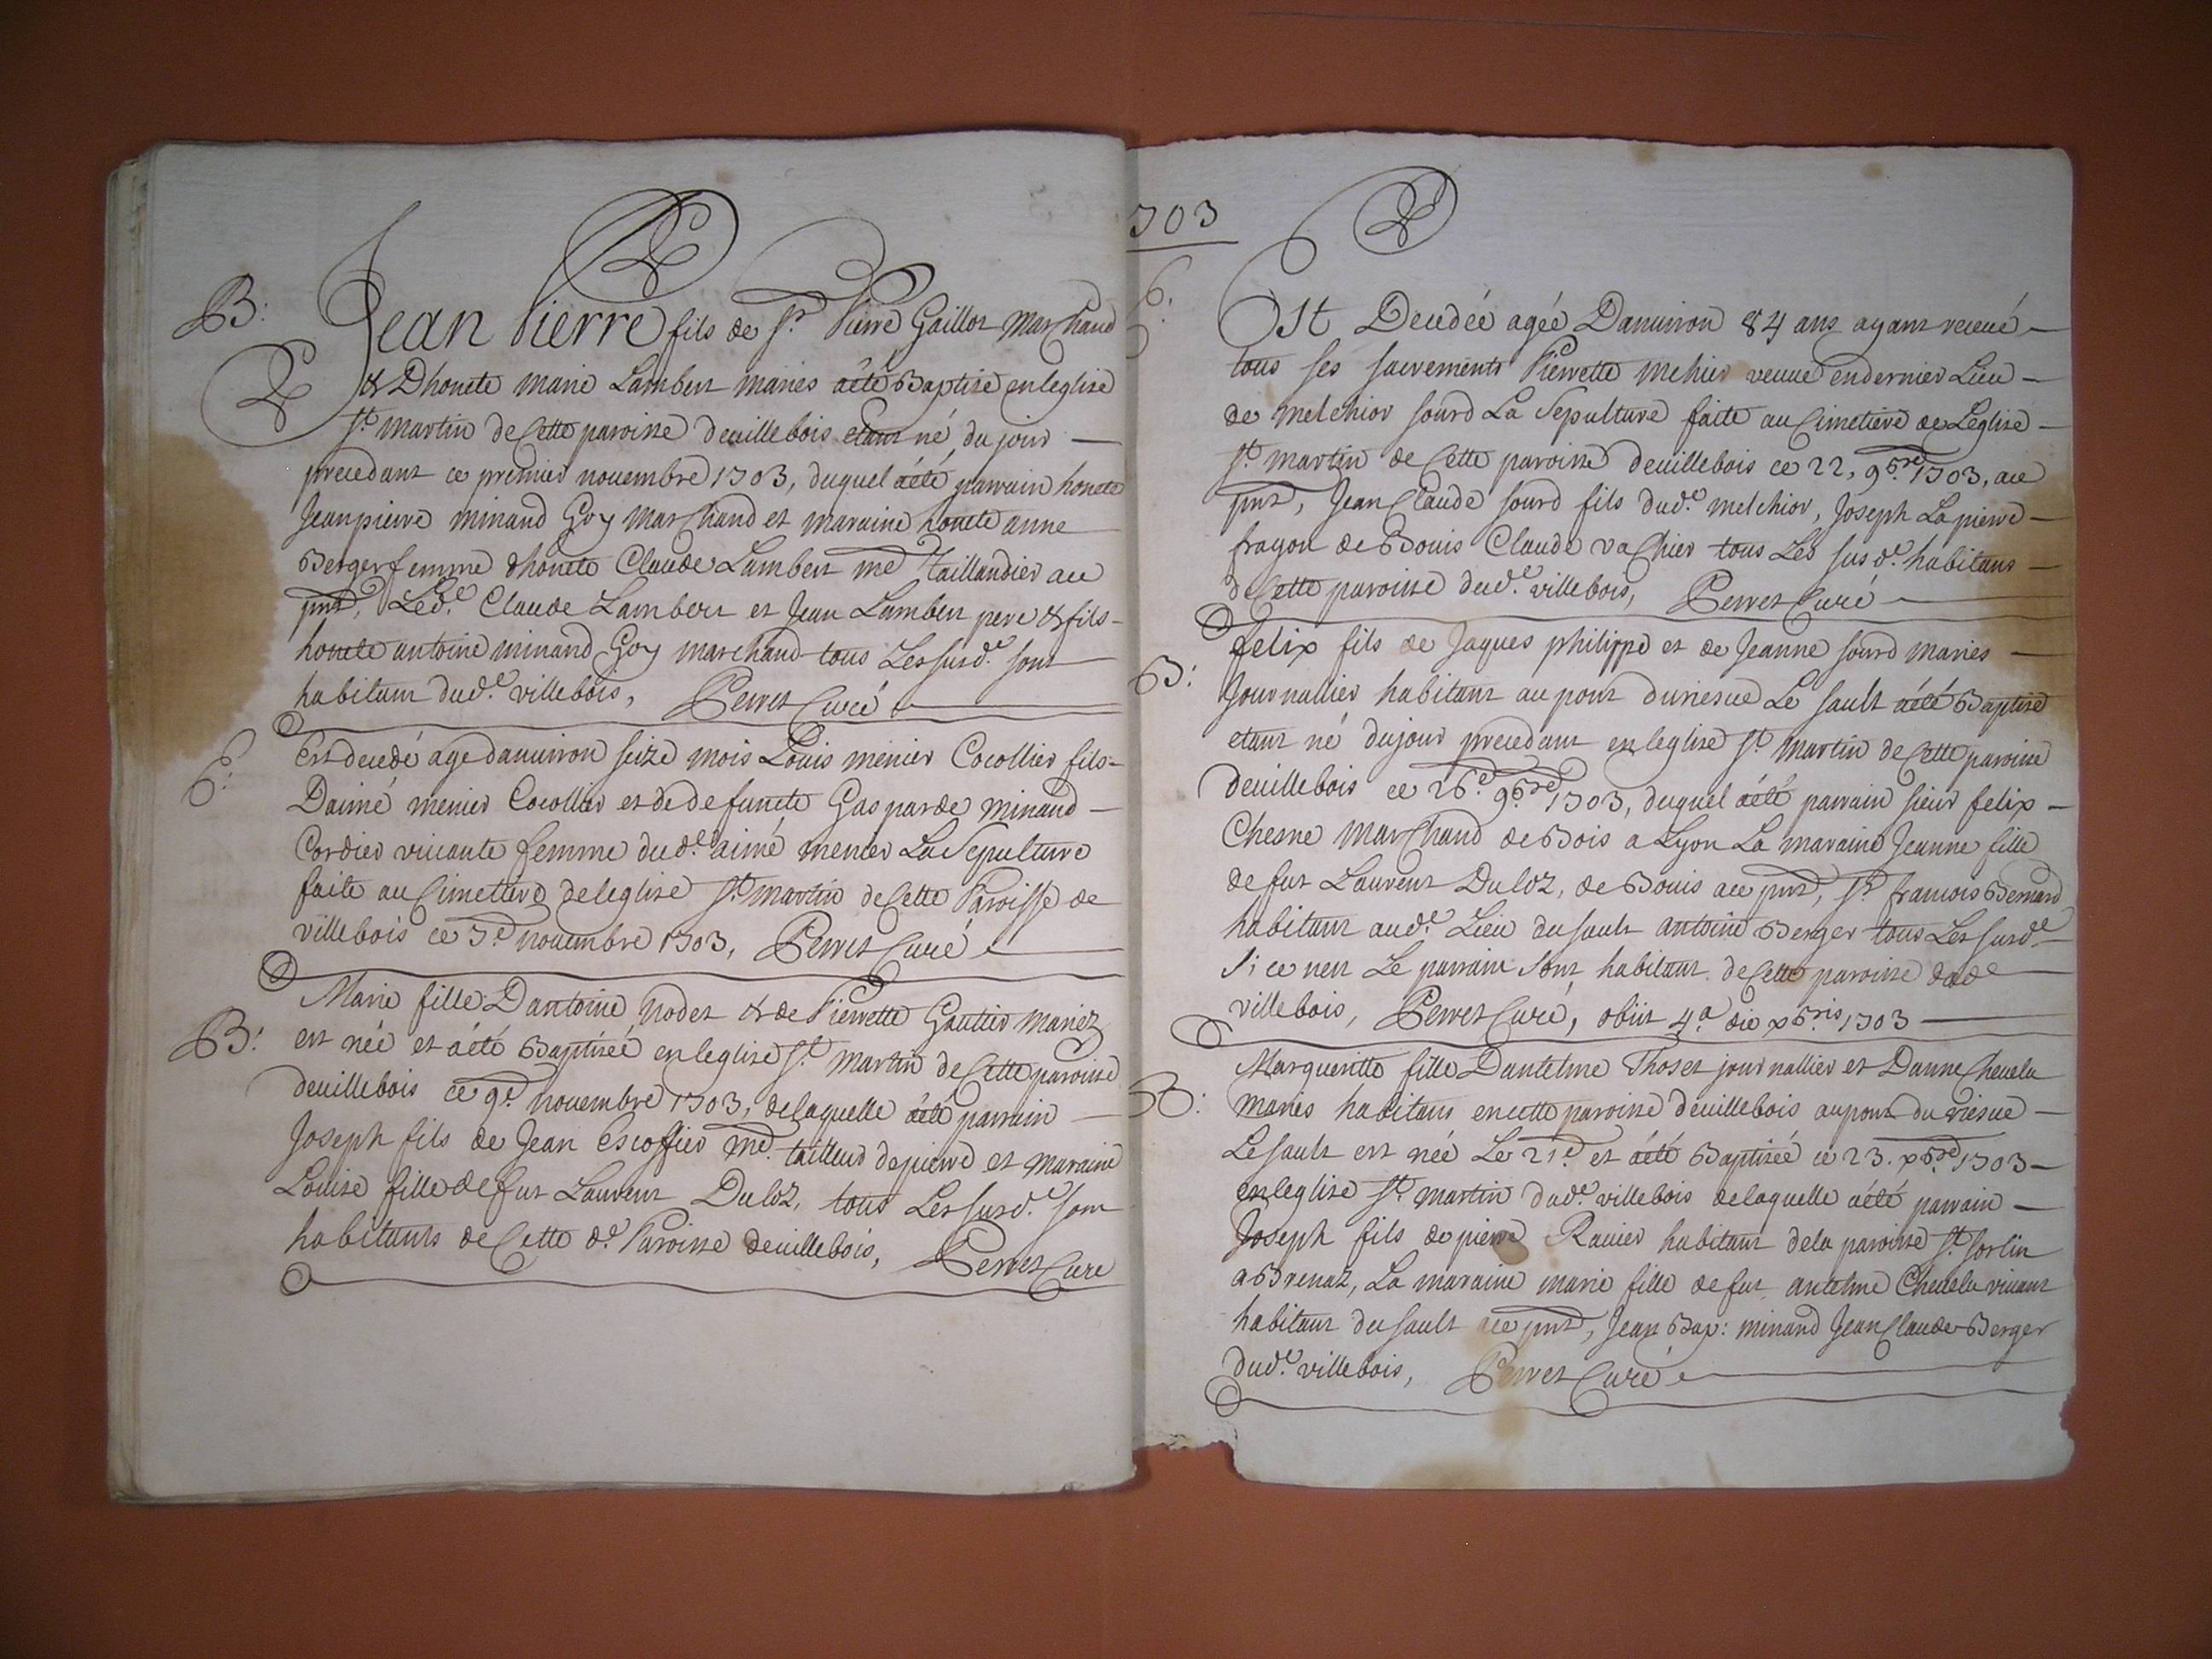 B:
Jean Pierre fils de Sr. Pierre Gaillot Marchand
& Dhonete marie Lambert mariés aété Baptisé enleglise
St. martin de Cette paroisse deuillebois etant né du jour
precedant ce premier nouembre 1703, duquel aété parrain honete
Jeanpierre minand Goy Marchand et maraine honete anne
Berger femme dhonete Claude Lambert me Taillandier au
pnt, Led.e Claude Lambert et Jean Lambert pere & fils
honete antoine minand Goy marchand tous Les susd.e sont
habitant dud.e villebois, Perret Curé
Est decedé agé danuiron seize mois Louis menier Cocollier fils
Daimé menier Cocollier et de defuncte Gasparde minand
Cordier viuante femme dud.e aimé menier La Sepulture
faite au Cimettere deleglise St. martin de Cette Paroisse de
villebois ce 5e nouembre 1703, Perret Curé
B:
Marie fille Dantoine Nodet & de Pierrette Gautier mariez
est née et aété Baptiséé enleglise St. Martin de Cette paroisse
deuillebois ce 9e nouembre 1703, delaquelle aété parrain
Joseph fils de Jean Escoffier me. tailleur depierre et maraine
Louise fille de fut Laurent Duloz, tous Les susd.e sont
habitants de Cette d.e Paroisse deuillebois, Perret Cure
1703
Est Decedéé agéé Danuiron 84 ans ayant receué
tous ses sacrements Pierrette mehier veuue endernier Lieu
de melchior sourd La Sepulture faite au Cimetiere de Leglise
St. martin de Cette paroisse deuillebois ce 22, 9bre 1703, au
pnt, Jean Claude sourd fils dud.e melchior, Joseph Lapierre
frayon de Bouis Claude vachier tous Les sus d.e habitans
de Cette paroisse dud.e villebois, Perret Curé
B:
felix fils de Jaques philippe et de Jeanne sourd mariés
Journallier habitant au pont duriesue Le sault aété Baptisé
etant né dujour precedant enleglise St. martin de Cette paroisse
deuillebois ce 26e 9bre 1703, duquel aété parrain sieur felix
Chesne Marchand de Bois a Lyon La maraine Jeanne fille
de fut Laurent Duloz, de Bouis au pnt, Sr. francois Bernard
habitant aud.e Lieu du sault antoine Berger tous Les susd.e
Si ce nest Le parrain sont habitant de Cette paroisse dud.e
villebois, Perret Curé, obiit 4a die xbris 1703
B:
Margueritte fille Dantelme Thoset journallier et Danne Cheuelu
mariés habitans encette paroisse deuillebois aupont du riesue
Le sault est néé Le 21e et aété Baptiséé ce 23. xbre 1703
enleglise St. martin dud.e villebois delaquelle aété parrain
Joseph fils de pierre Rauier habitant dela paroisse St. sorlin
a Brenaz, La maraine marie fille de fut antelme Cheuelu viuant
habitant du sault au pnt, Jean Bap: minand Jean Claude Berger
dud.e villebois, Perret Curé